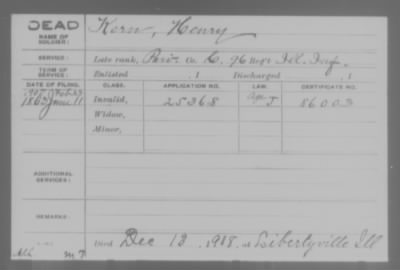 DEAD
NAME OF SOLDIER: Kern, Henry
SERVICE: Late rank, Priv. Co. C, 96 Reg't Ill. Inf.
TERM OF SERVICE: Enlisted , 1 Discharged , 1
DATE OF FILING. CLASS. APPLICATION NO. LAW. CERTIFICATE NO.
1863 June 11 Invalid, 25368 86003
Widow,
Minor,
ADDITIONAL SERVICES:
REMARKS:
Died Dec 12, 1918, at Libertyville Ill